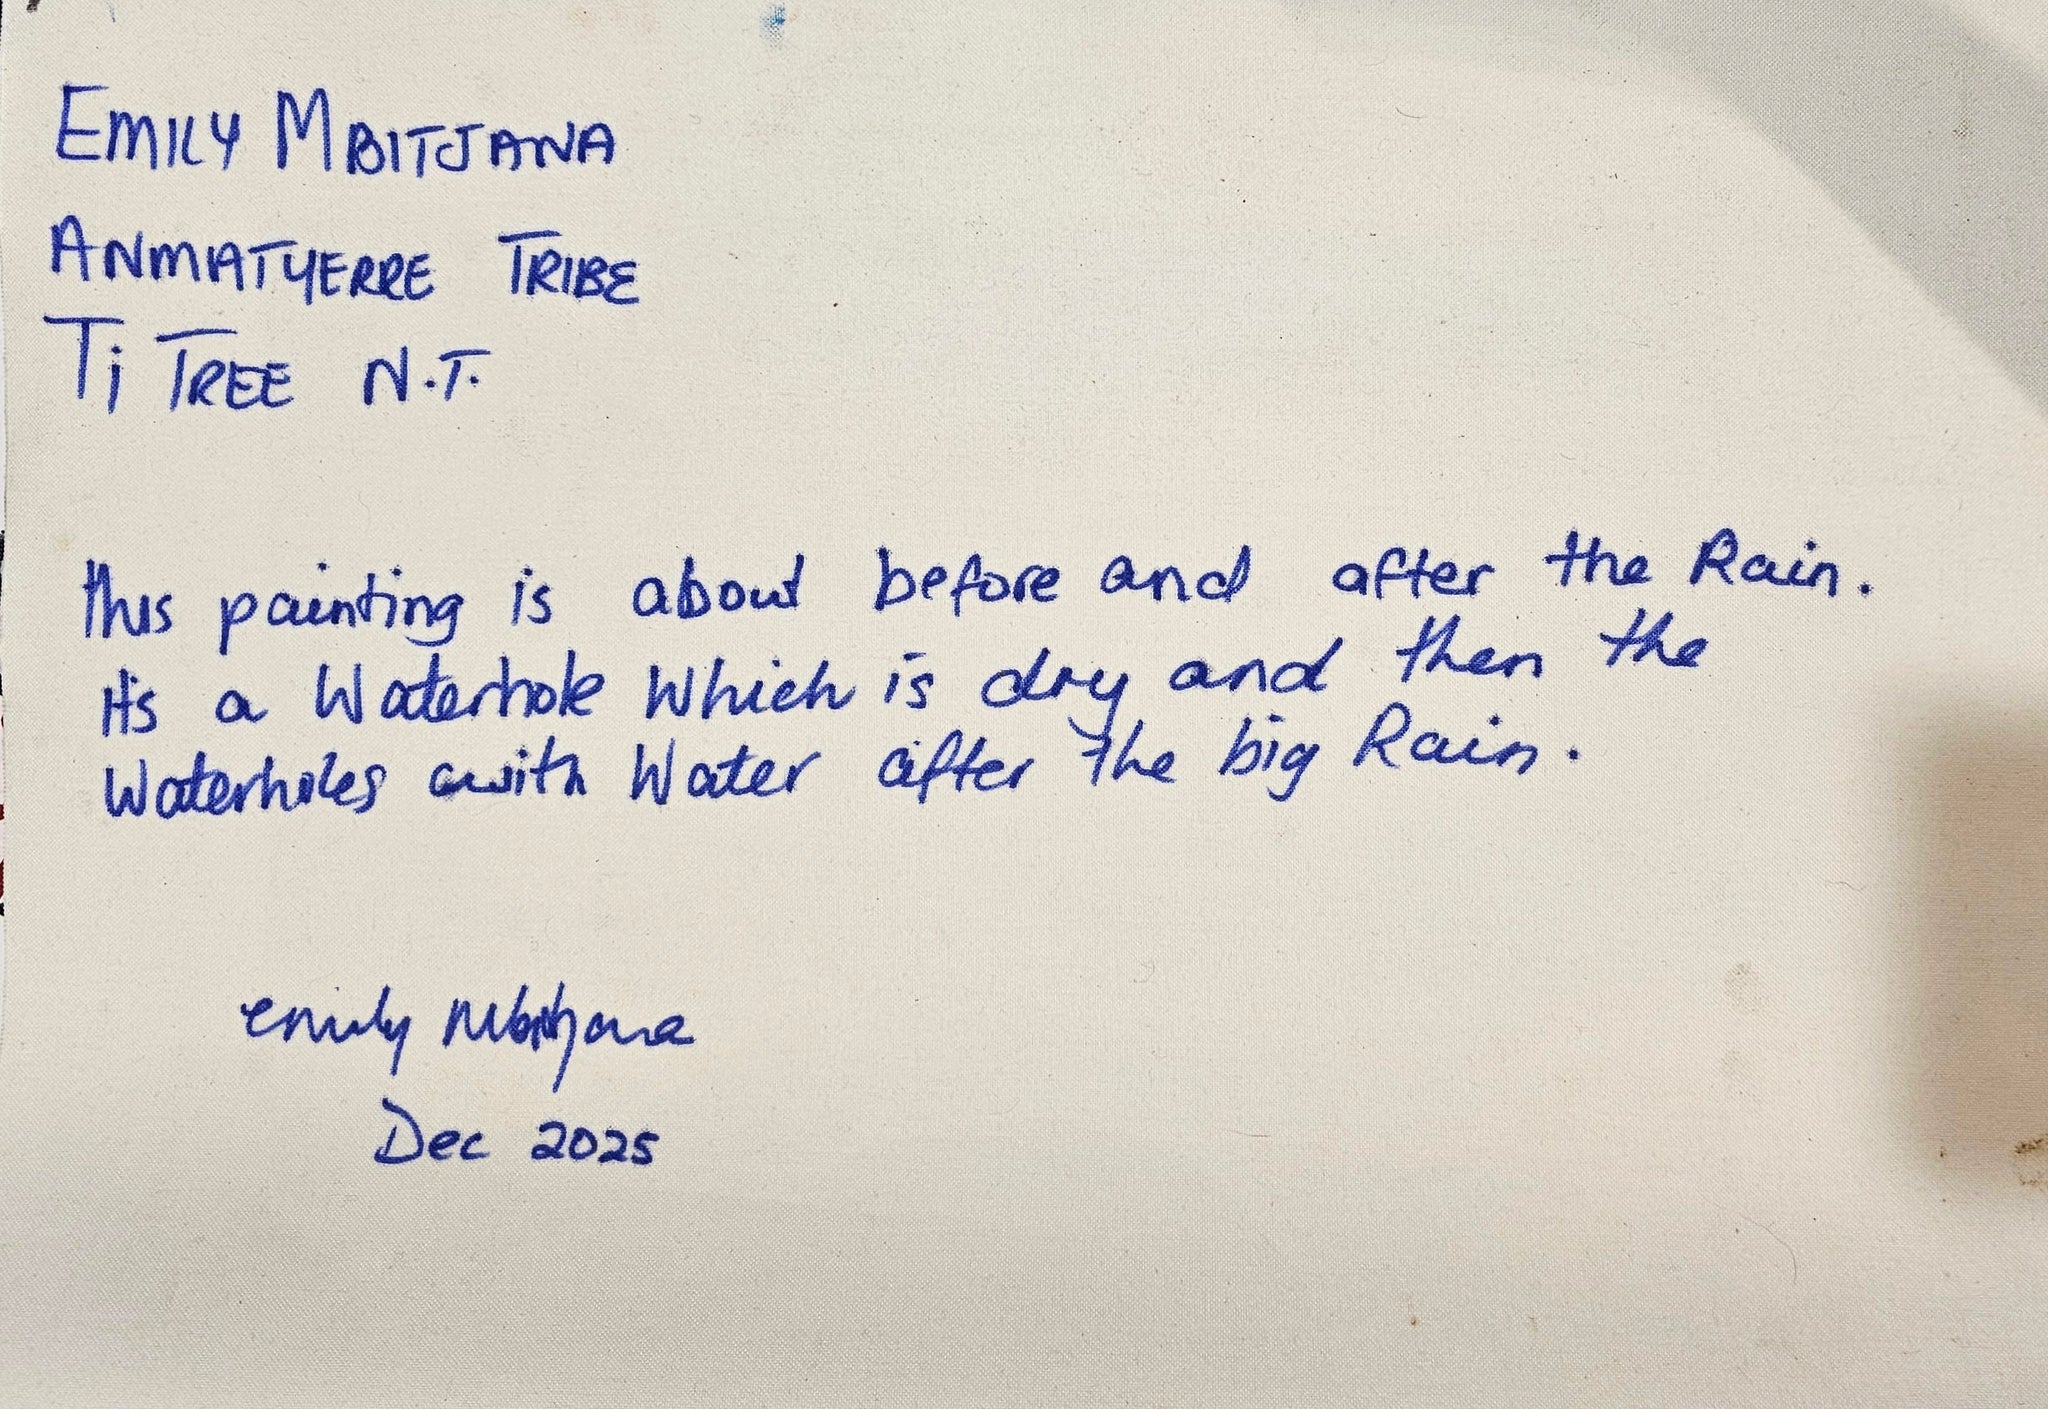 EMILY MBITJANA
ANMATYERRE TRIBE
Ti TREE N.T.
this painting is about before and after the Rain.
it's a Waterhole Which is dry and then the
Waterholes with Water after the big Rain.
emily Mbitjana
Dec 2025